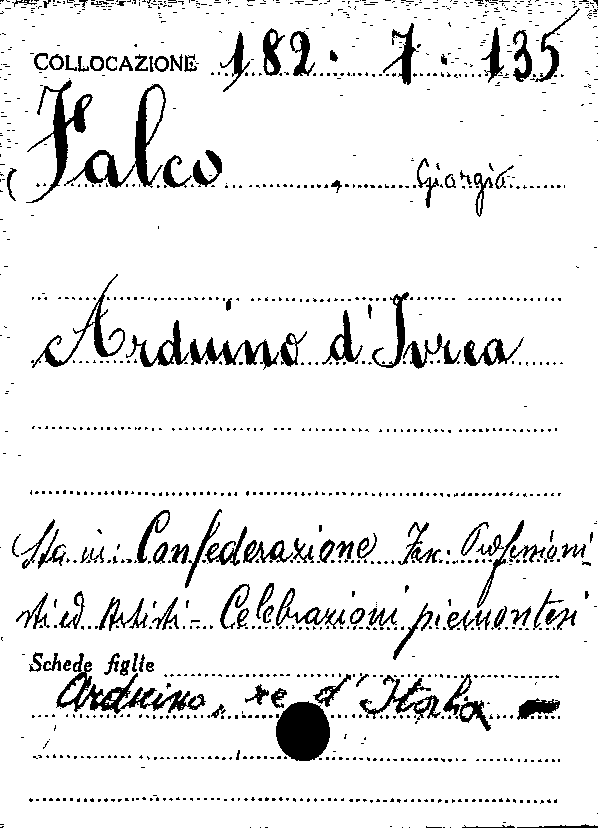 COLLOCAZIONE 182 . 7 . 135
Falco , Giorgio
Arduino d'Ivrea
(Sta in: Confederazione Fasc. Professioni-
sti ed Artisti - Celebrazioni piemontesi
Schede figlie
Arduino, re d'Italia -